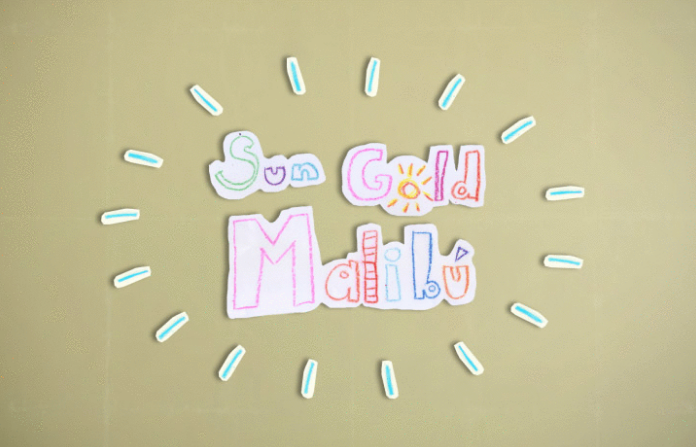 Sun Gold
Malibú